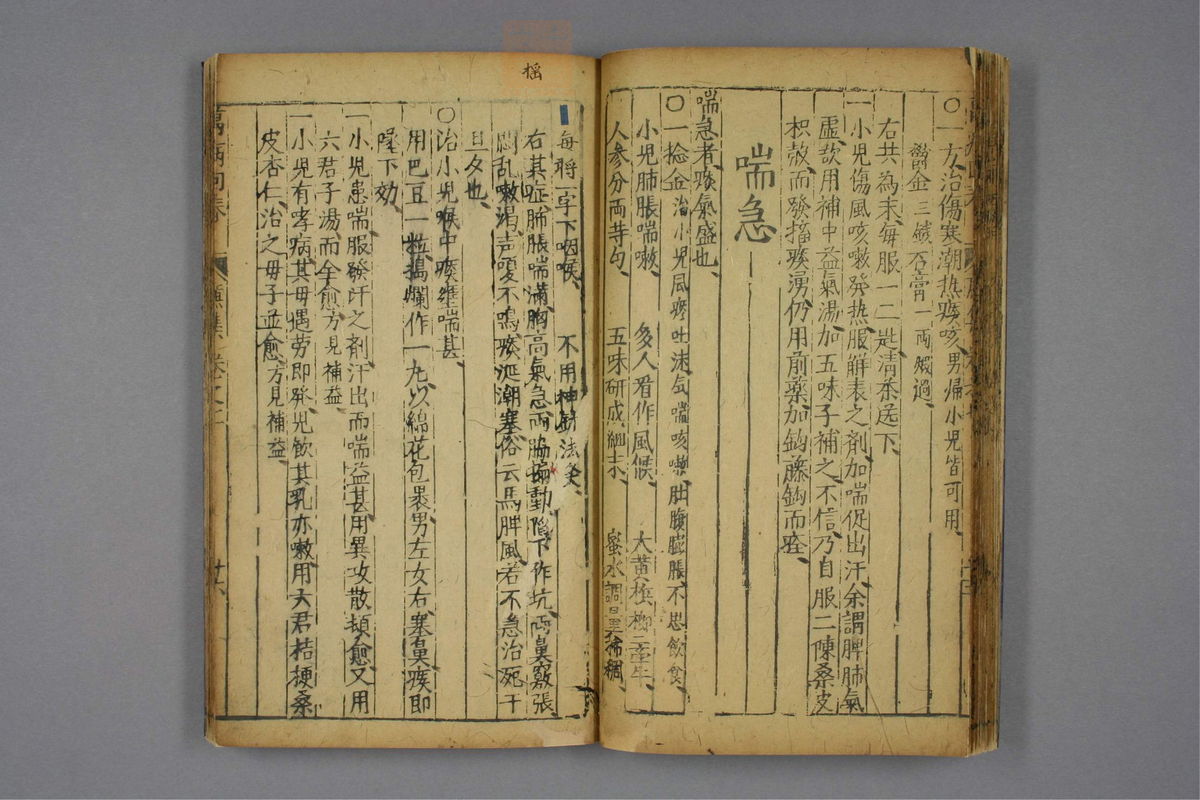 ○一方治傷寒潮热痰咳男婦小児皆可用
鬱金三錢 石膏一両煅過
右共為末每服一二匙清茶送下
一小児傷風咳嗽発热服解表之剤加喘促出汗余謂脾肺氣
虚欲用補中益氣湯加五味子補之不信乃自服二陳桑皮
枳殻而發搐痰湧仍用前藥加鈎藤鈎而痊
喘急
喘急者痰氣盛也
○一捻金治小児風痰吐沫気喘咳嗽肚腹膨脹不思飲食
小児肺脹喘嗽 多人看作風候 大黄檳榔二牽牛
人参分両等勻 五味研成細末 蜜水調量稀稠
每將一字下咽喉 不用神針法灸
右其症肺脹喘滿胸高氣急両脇搧動陷下作坑両鼻竅張
悶乱嗽渴声嗄不鳴痰涎潮塞俗云馬脾風若不急治死于
旦夕也
○治小児喉中痰壅喘甚
用巴豆一粒搗爛作一丸以綿花包裹男左女右塞鼻痰即
墜下効
一小児患喘服發汗之剤汗出而喘益甚用異攻散頓愈又用
六君子湯而全愈方見補益
一小児有孝病其母遇劳即発児飲其乳亦嗽用六君桔梗桑
皮杏仁治之母子並愈方見補益
萬病回春
卷之七
摇